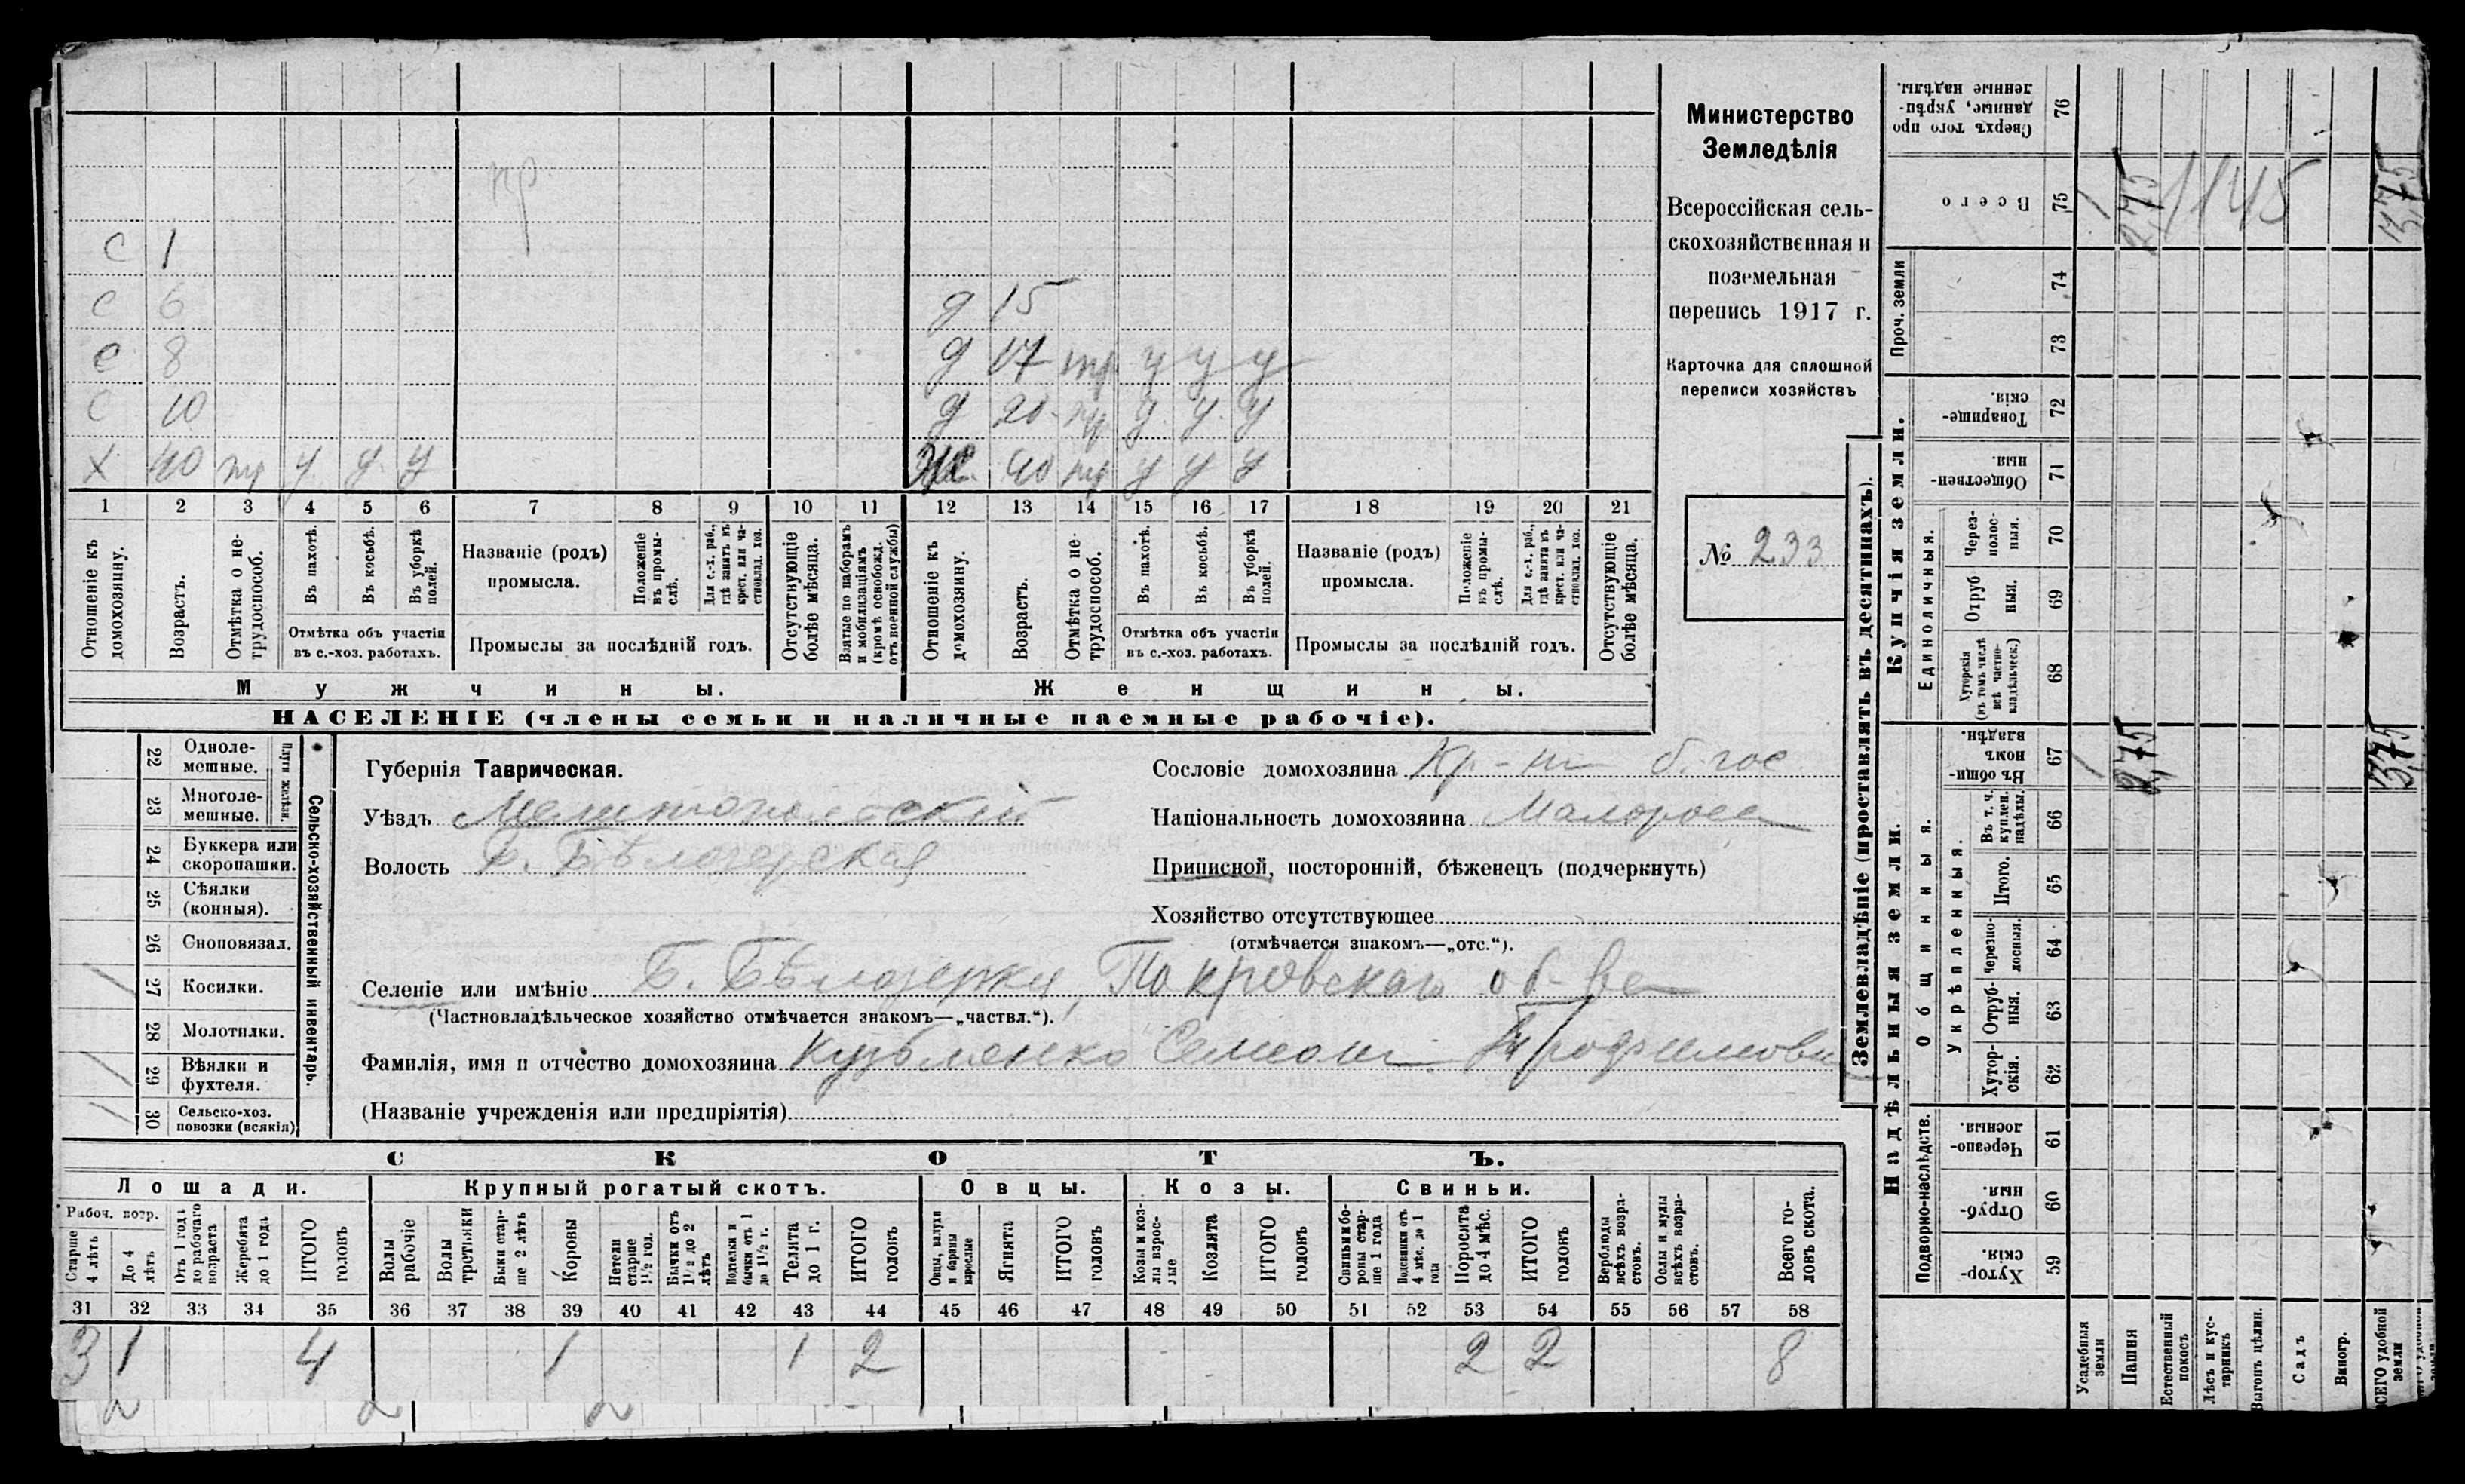 Министерство
Земледѣлія
Всероссійская сель-
скохозяйственная и
поземельная
перепись 1917 г.
Карточка для сплошной
переписи хозяйствъ
№ 233
С 1
С 6
С 8
С 10
Х 40 тр у у у
д 15
д 17 тр у у у
д 20 тр у у у
Ж 40 тр у у у
1 2 3 4 5 6 7 8 9 10 11 12 13 14 15 16 17 18 19 20 21
Отношеніе къ домохозяину.
Возрастъ.
Отмѣтка о не-трудоспособ.
Въ пахотѣ.
Въ косьбѣ.
Въ уборкѣ полей.
Отмѣтка объ участіи
въ с.-хоз. работахъ.
Названіе (родъ)
промысла.
Положеніе въ промы-слѣ.
Для с.-х. раб., гдѣ занятъ въ крест. или ча-стновлад. хоз.
Промыслы за послѣдній годъ.
Отсутствующіе болѣе мѣсяца.
Взятые по наборамъ и мобилизаціямъ (кромѣ освобожд. отъ военной службы)
Отношеніе къ домохозяину.
Возрастъ.
Отмѣтка о не-трудоспособ.
Въ пахотѣ.
Въ косьбѣ.
Въ уборкѣ полей.
Отмѣтка объ участіи
въ с.-хоз. работахъ.
Названіе (родъ)
промысла.
Положеніе къ промы-слѣ.
Для с.-х. раб., гдѣ занята въ крест. или ча-стновлад. хоз.
Промыслы за послѣдній годъ.
Отсутствующіе болѣе мѣсяца.
Мужчины.
Женщины.
НАСЕЛЕНІЕ (члены семьи и наличные наемные рабочіе).
22 Одноле-мешные.
23 Многоле-мешные.
Плуги желѣзн.
24 Буккера или скоропашки.
25 Сѣялки (конныя).
26 Сноповязал.
/ 27 Косилки.
28 Молотилки.
/ 29 Вѣялки и фухтеля.
/ 30 Сельско-хоз. повозки (всякія)
Сельско-хозяйственный инвентарь.
Губернія Таврическая.
Уѣздъ Мелитопольскій
Волость Б. Бѣлозерская
Сословіе домохозяина Кр-нъ б. гос
Національность домохозяина Малоросс
Приписной, посторонній, бѣженецъ (подчеркнуть)
Хозяйство отсутствующее
(отмѣчается знакомъ—„отс.“).
Селеніе или имѣніе Б. Бѣлозерка, Покровскаго об-ва
(Частновладѣльческое хозяйство отмѣчается знакомъ—„частвл.“).
Фамилія, имя и отчество домохозяина Кузьменко Семенъ Трофимови
(Названіе учрежденія или предпріятія)
СКОТЪ.
Лошади. Крупный рогатый скотъ. Овцы. Козы. Свиньи.
Рабоч. возр.
Старше 4 лѣтъ
До 4 лѣтъ
Отъ 1 года до рабочаго возраста
Жеребята до 1 года
ИТОГО головъ
Волы рабочіе
Волы третьяки
Быки стар-ше 2 лѣтъ
Коровы
Нетели старше 1½ год.
Бычки отъ 1½ до 2 лѣтъ
Подтелки и бычки отъ 1 до 1½ г.
Телята до 1 г.
ИТОГО головъ
Овцы, валухи и бараны взрослые
Ягнята
ИТОГО головъ
Козы и коз-лы взрос-лые
Козлята
ИТОГО головъ
Свиньи и бо-ровы стар-ше 1 года
Подсвинки отъ 4 мѣс. до 1 года
Поросята до 4 мѣс.
ИТОГО головъ
Верблюды всѣхъ возра-стовъ.
Ослы и мулы всѣхъ возра-стовъ.
Всего го-ловъ скота.
31 32 33 34 35 36 37 38 39 40 41 42 43 44 45 46 47 48 49 50 51 52 53 54 55 56 57 58
3 1 4 1 1 2 2 2 8
Землевладѣніе (проставлять въ десятинахъ).
Купчія земли.
Надѣльныя земли.
Сверхъ того про-данные, укрѣп-ленные надѣлы. 76
Всего 75
Проч. земли 74 73
Товарище-скія. 72
Обществен-ныя. 71
Единоличныя.
Через-полос-ныя. 70
Отруб-ныя. 69
Хуторскія (въ томъ числѣ всѣ частно-владѣльческ.) 68
Общинныя.
Въ общи-номъ владѣн. 67
Укрѣпленныя.
Въ т. ч. куплен. надѣлы. 66
Итого. 65
Черезпо-лосныя. 64
Отруб-ныя. 63
Хутор-скія. 62
Подворно-наслѣдств.
Черезпо-лосныя. 61
Отруб-ныя. 60
Хутор-скія. 59
Усадебныя земли
Пашня
Естественный покосъ
Лѣсъ и кус-тарникъ
Выгонъ цѣлин.
Садъ
Виногр.
ВСЕГО удобной земли